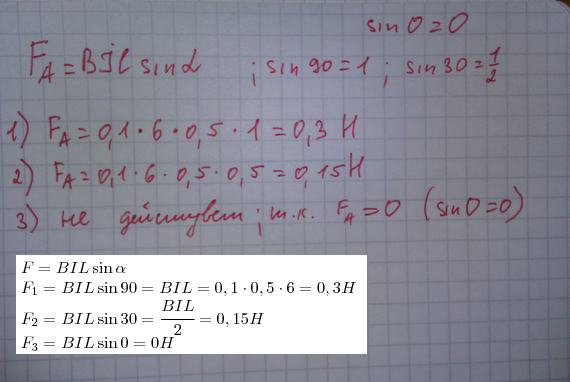 sin 0 = 0
F_A = BIl sin α ; sin 90 = 1 ; sin 30 = 1/2
1) F_A = 0,1 · 6 · 0,5 · 1 = 0,3 Н
2) F_A = 0,1 · 6 · 0,5 · 0,5 = 0,15 Н
3) не действует ; т.к. F_A = 0 (sin 0 = 0)
F = BIL sin α
F₁ = BIL sin 90 = BIL = 0,1 · 0,5 · 6 = 0,3H
F₂ = BIL sin 30 = BIL/2 = 0,15H
F₃ = BIL sin 0 = 0H